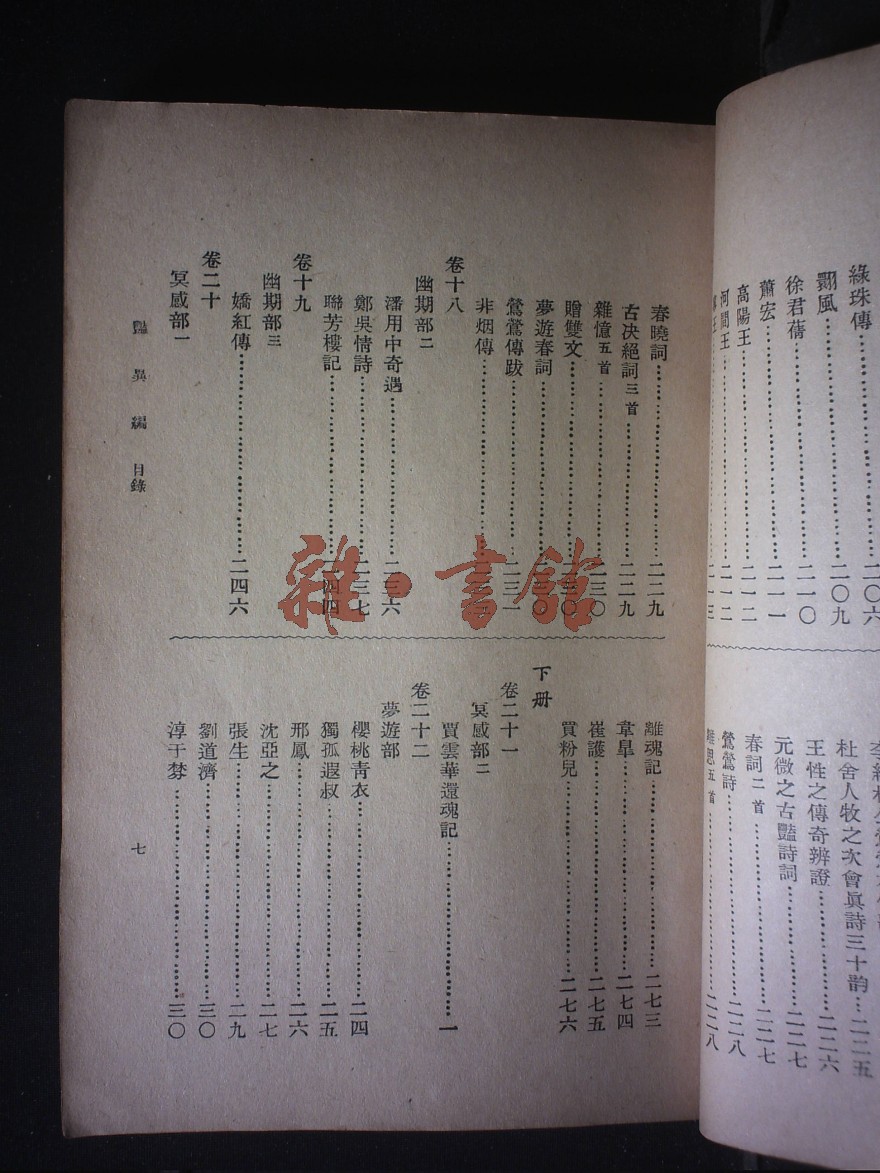 綠珠傳……二〇六
翾風……二〇九
徐君蒨……二一〇
蕭宏……二一一
高陽王……二一二
河間王……二一二
杜舍人牧之次會眞詩三十韵…二二五
王性之傳奇辨證……二二六
元微之古豔詩詞……二二七
春詞二首……二二七
鶯鶯詩……二二八
離思五首……二二八
春曉詞……二二九
古決絕詞三首……二二九
雜憶五首……二三〇
贈雙文……二三〇
夢遊春詞
鶯鶯傳跋……二三一
非烟傳
卷十八
幽期部二
潘用中奇遇……二三六
鄭吳情詩……二三七
聯芳樓記……二四四
卷十九
幽期部三
嬌紅傳……二四六
卷二十
冥感部一
離魂記……二七三
韋臯……二七四
崔護……二七五
買粉兒……二七六
下册
卷二十一
冥感部二
賈雲華還魂記……一
卷二十二
夢遊部
櫻桃靑衣……二四
獨孤遐叔……二五
邢鳳……二六
沈亞之……二七
張生……二九
劉道濟……三〇
淳于棼……三〇
豔異編 目錄
七
雜·書館